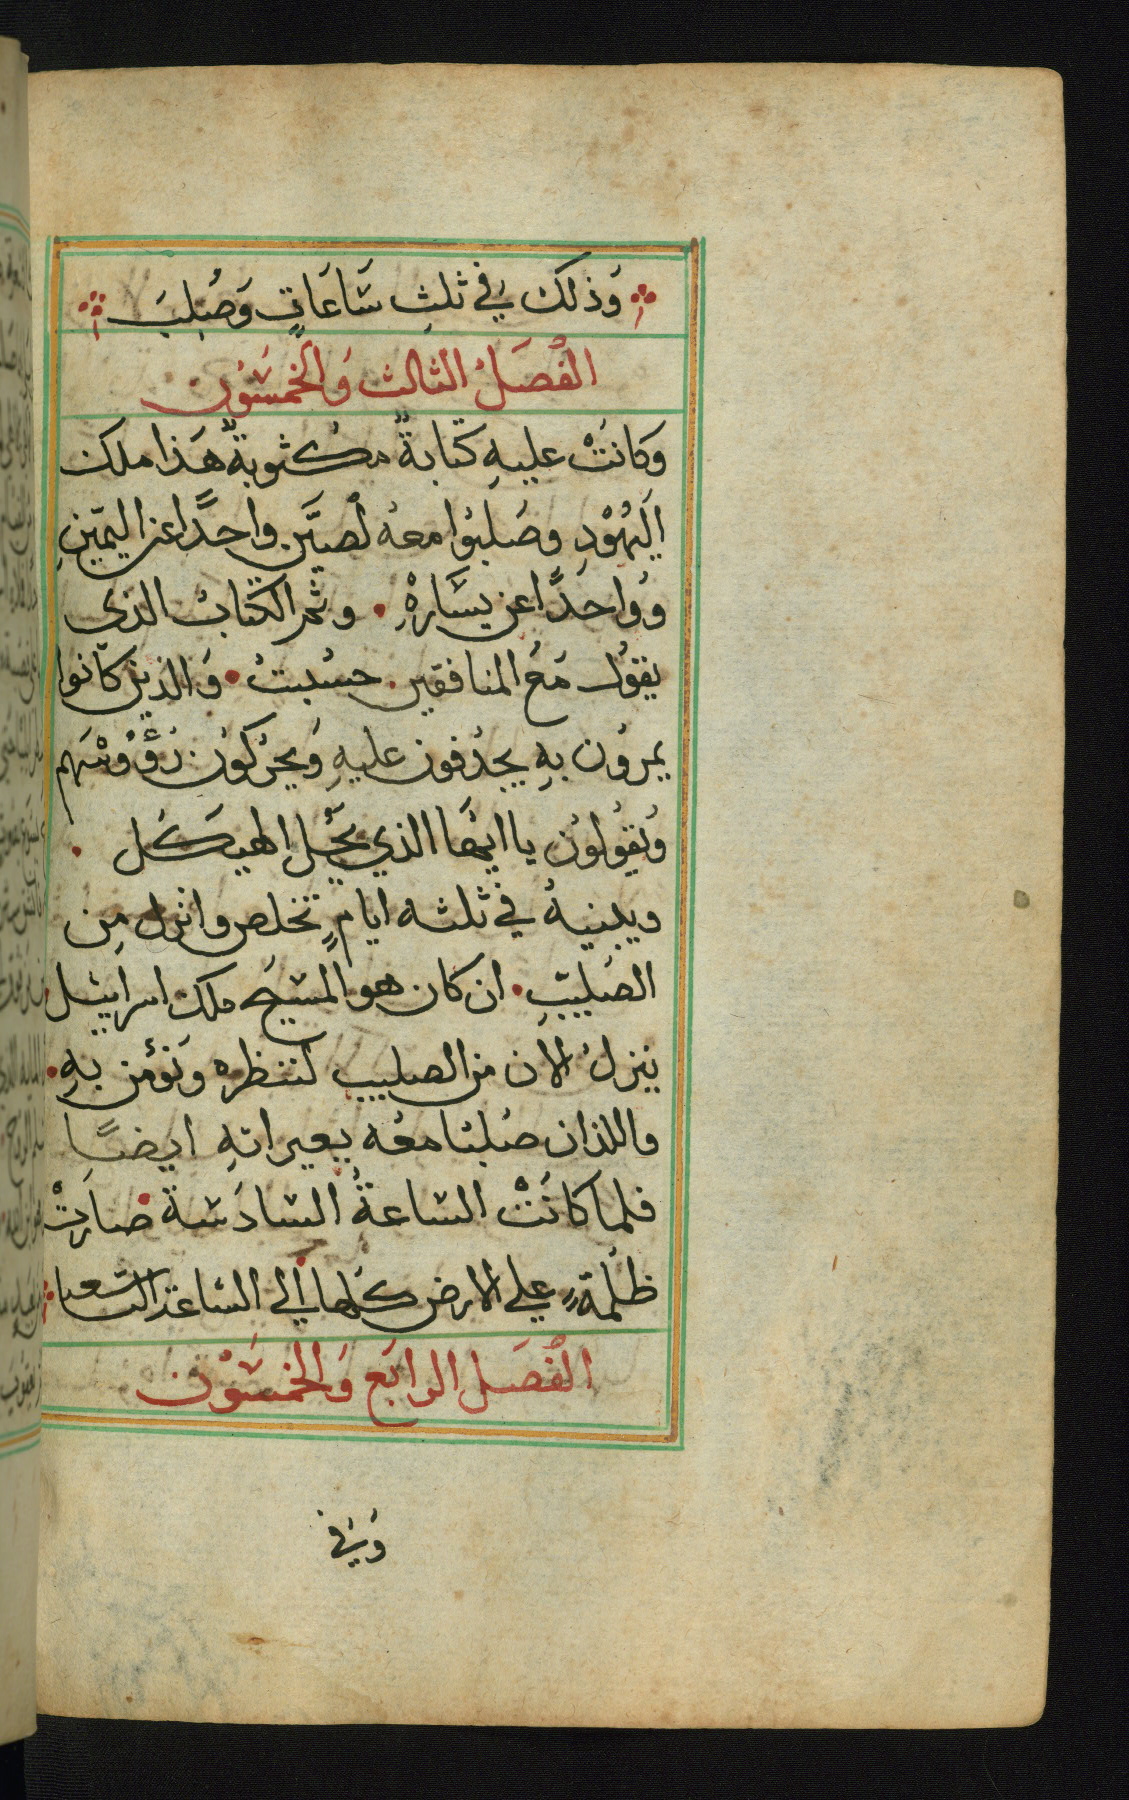 وَذلك يَفي ثلثِ سَاعَاتٍ وَصُلِبَ
الفْصَلُ الثالث وَالخمسَوُن
وَكانَتْ عليهِ كتابةٌ مكتوبةٌ هَذا ملك
اليَهُوْدِ وصَلبوُا معهُ لصيَّن واحدًا عن اليمَينِ
ووُاحدًا عن يسَارهْ وثم الكتابُ الذى
يقوُل مَعُ المنافقين حسُبتُ وَالذين كانوا
يمروُن بهِ يجدُفون عليهِ وَيحرُكوُن رُؤوُسَهم
وُيقوُلوُن يا ايُهَا الذي يحَُل الهيكَل
ويبنيهُ في ثلثه ايامٍ تخلص وانزل مِن
الصَليبِ ان كان هو المسَيحُ ملك اسراييل
ينزلُ الان من الصليب لننظره ونؤمن بهِ
واللذان صُلبَا معُه يعيرانهِ ايضًا
فلما كانَتْ الساعةُ السادَسَة صارَتْ
ظلُمةٍ علي الارض كلها الي الساعة التاسعا
الفْصَل الرابَع وَالخمسَوْن
وَيَفي